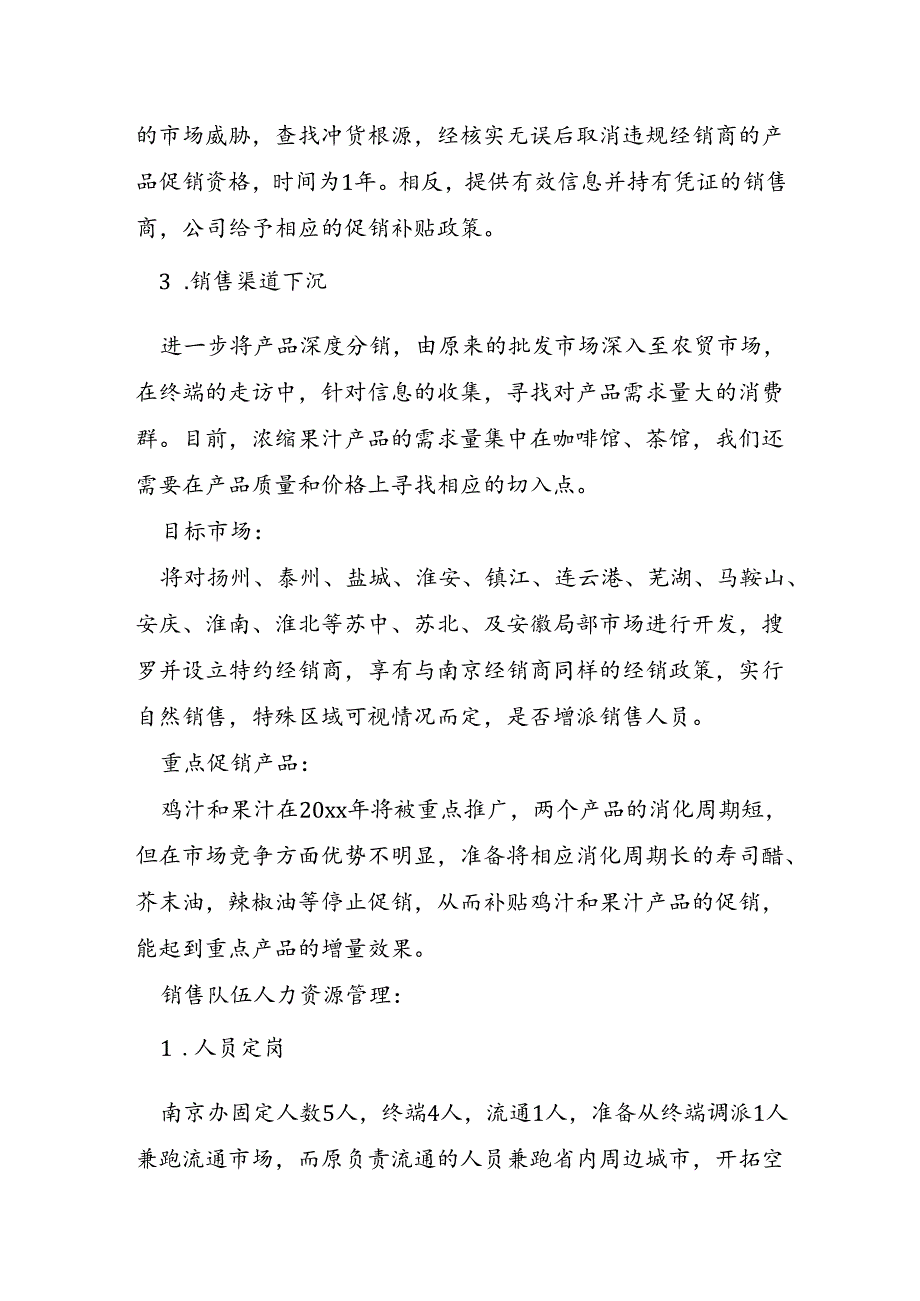 的市场威胁，查找冲货根源，经核实无误后取消违规经销商的产
品促销资格，时间为1年。相反，提供有效信息并持有凭证的销售
商，公司给予相应的促销补贴政策。
3 .销售渠道下沉
进一步将产品深度分销，由原来的批发市场深入至农贸市场，
在终端的走访中，针对信息的收集，寻找对产品需求量大的消费
群。目前，浓缩果汁产品的需求量集中在咖啡馆、茶馆，我们还
需要在产品质量和价格上寻找相应的切入点。
目标市场：
将对扬州、泰州、盐城、淮安、镇江、连云港、芜湖、马鞍山、
安庆、淮南、淮北等苏中、苏北、及安徽局部市场进行开发，搜
罗并设立特约经销商，享有与南京经销商同样的经销政策，实行
自然销售，特殊区域可视情况而定，是否增派销售人员。
重点促销产品：
鸡汁和果汁在20xx年将被重点推广，两个产品的消化周期短，
但在市场竞争方面优势不明显，准备将相应消化周期长的寿司醋、
芥末油，辣椒油等停止促销，从而补贴鸡汁和果汁产品的促销，
能起到重点产品的增量效果。
销售队伍人力资源管理：
1 .人员定岗
南京办固定人数5人，终端4人，流通1人，准备从终端调派1人
兼跑流通市场，而原负责流通的人员兼跑省内周边城市，开拓空